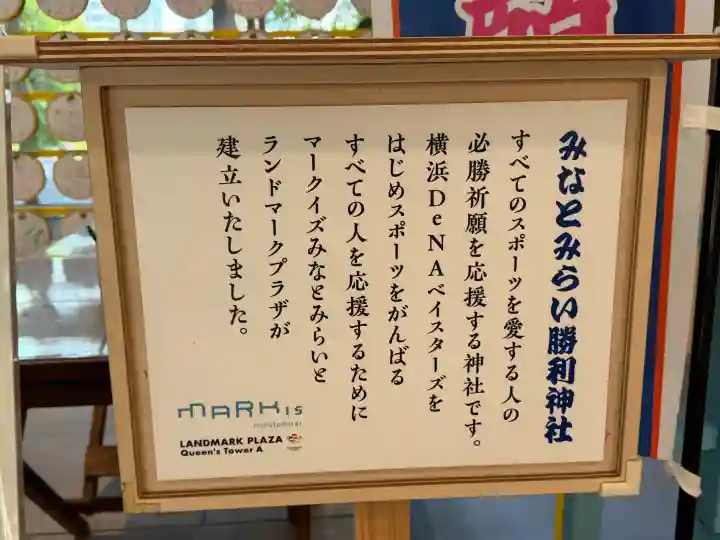 みなとみらい勝利神社
すべてのスポーツを愛する人の
必勝祈願を応援する神社です。
横浜DeNAベイスターズを
はじめスポーツをがんばる
すべての人を応援するために
マークイズみなとみらいと
ランドマークプラザが
建立いたしました。
MARK IS
minatomirai
LANDMARK PLAZA
Queen's Tower A